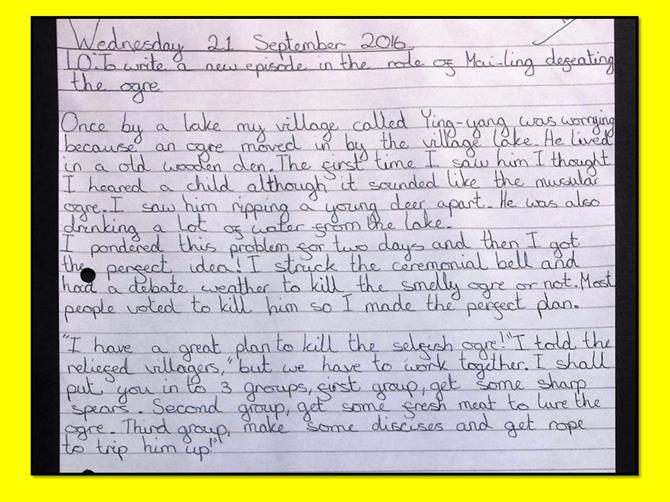 Wednesday 21 September 2016
LO:To write a new episode in the role of Mai-ling defeating
the ogre
Once by a lake my village called Ying-yang was worrying
because an ogre moved in by the village lake. He lived
in a old wooden den. The first time I saw him I thought
I heared a child although it sounded like the muscular
ogre. I saw him ripping a young deer apart. He was also
drinking a lot of water from the lake.
I pondered this problem for two days and then I got
the perfect idea! I struck the ceremonial bell and
had a debate weather to kill the smelly ogre or not. Most
people voted to kill him so I made the perfect plan.
"I have a great plan to kill the selfish ogre!" I told the
relieged villagers, "but we have to work together. I shall
put you in to 3 groups, first group, get some sharp
spears. Second group, get some fresh meat to lure the
ogre. Third group, make some discises and get rope
to trip him up!"